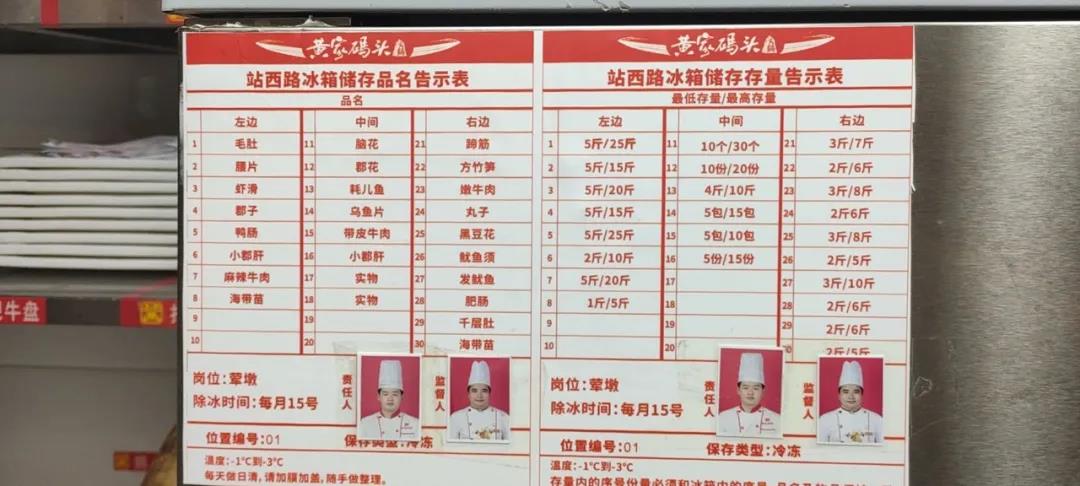 黄家码头
站西路冰箱储存品名告示表
品名
左边 中间 右边
1 毛肚 11 脑花 21 蹄筋
2 腰片 12 郡花 22 方竹笋
3 虾滑 13 耗儿鱼 23 嫩牛肉
4 郡子 14 乌鱼片 24 丸子
5 鸭肠 15 带皮牛肉 25 黑豆花
6 小郡肝 16 小郡肝 26 鱿鱼须
7 麻辣牛肉 17 实物 27 发鱿鱼
8 海带苗 18 实物 28 肥肠
9 19 29 千层肚
10 20 30 海带苗
岗位:荤墩
除冰时间:每月15号
责任人
监督人
位置编号:01 保存类型:冷冻
温度:-1℃到-3℃
每天做日清,请加膜加盖,随手做整理。
黄家码头
站西路冰箱储存存量告示表
最低存量/最高存量
左边 中间 右边
1 5斤/25斤 11 10个/30个 21 3斤/7斤
2 5斤/15斤 12 10份/20份 22 2斤/6斤
3 5斤/20斤 13 4斤/10斤 23 3斤/8斤
4 5斤/15斤 14 5包/15包 24 2斤6斤
5 5斤/25斤 15 5包/10包 25 3斤/8斤
6 2斤/10斤 16 5份/15份 26 2斤/5斤
7 5斤/20斤 17 27 3斤/10斤
8 1斤/5斤 18 28 2斤/6斤
9 19 29 2斤/6斤
10 20 2斤/5斤
岗位:荤墩
除冰时间:每月15号
责任人
监督人
位置编号:01 保存类型:冷冻
温度:-1℃到-3℃
存量内的序号份量必须和冰箱内的序号
牛盘